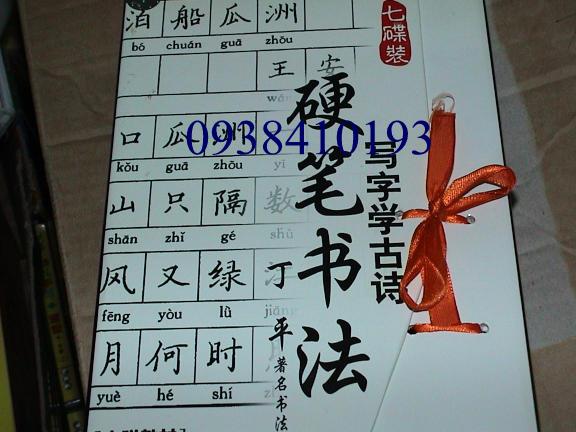 泊 船 瓜 洲
bó chuán guā zhōu
王 安
wáng
口 瓜 洲 一
kǒu guā zhōu yī
山 只 隔 数
shān zhǐ gé shù
风 又 绿 江
fēng yòu lǜ jiāng
月 何 时
yuè hé shí
七碟装
硬笔书法
写字学古诗
丁平著名书法
0938410193